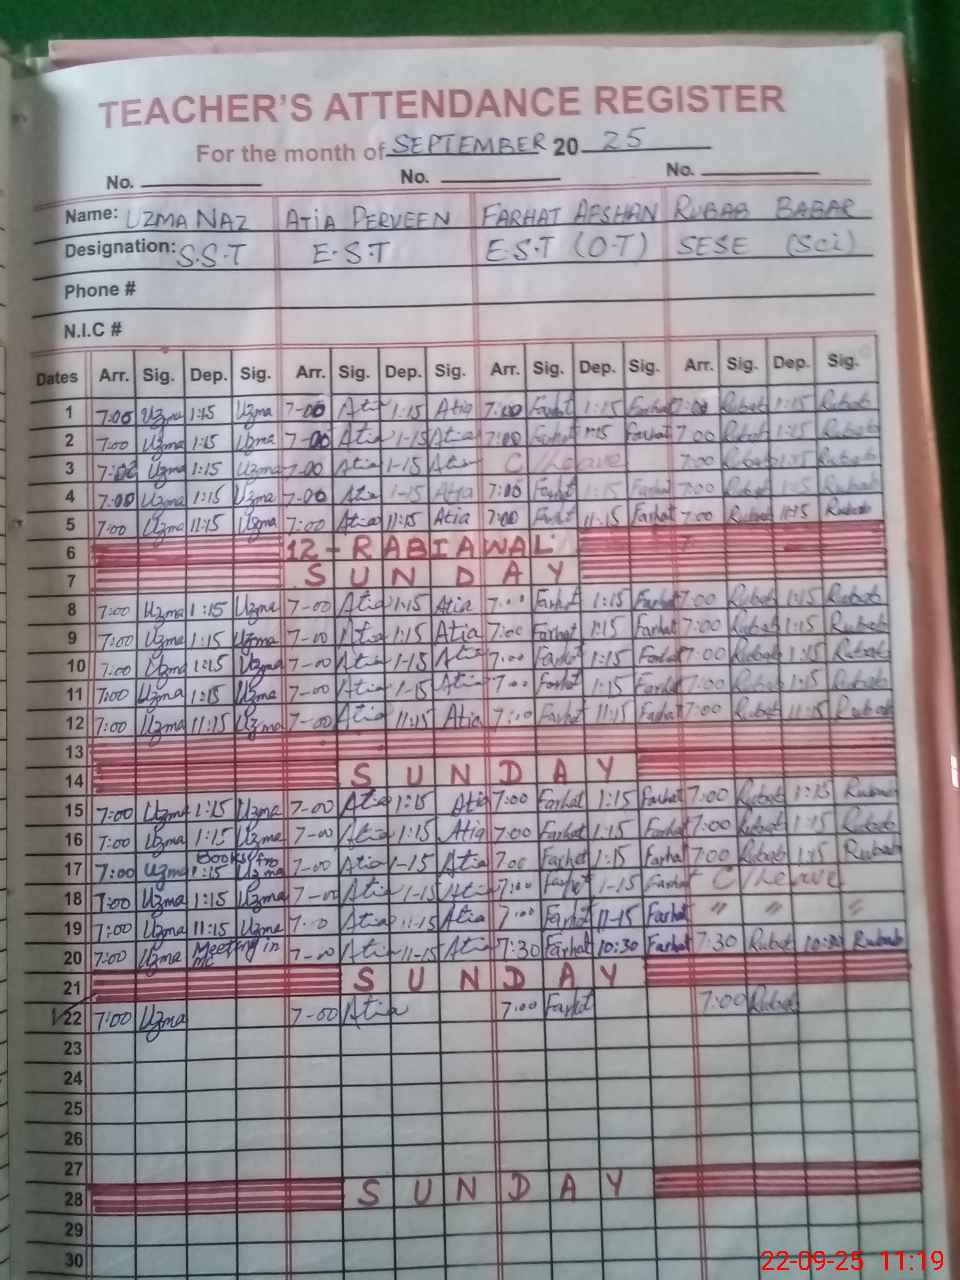 TEACHER'S ATTENDANCE REGISTER
For the month of SEPTEMBER 20 25
No. No. No.
Name: UZMA NAZ ATIA PERVEEN FARHAT AFSHAN RUBAB BABAR
Designation: S.S.T E.S.T E.S.T (O.T) SESE (Sci)
Phone #
N.I.C #
Dates Arr. Sig. Dep. Sig. Arr. Sig. Dep. Sig. Arr. Sig. Dep. Sig. Arr. Sig. Dep. Sig.
1 7:00 Uzma 1:15 Uzma 7-00 Atia 1:15 Atia 7:00 Farhat 1:15 Farhat 7:00 Rubab 1:15 Rubab
2 7:00 Uzma 1:15 Uzma 7-00 Atia 1-15 Atia 7:00 Farhat 1:15 Farhat 7:00 Rubab 1:15 Rubab
3 7:00 Uzma 1:15 Uzma 7-00 Atia 1-15 Atia C/Leave 7:00 Rubab 1:15 Rubab
4 7:00 Uzma 1:15 Uzma 7-00 Atia 1-15 Atia 7:00 Farhat 1:15 Farhat 7:00 Rubab 1:15 Rubab
5 7:00 Uzma 11:15 Uzma 7:00 Atia 11:15 Atia 7:00 Farhat 11:15 Farhat 7:00 Rubab 11:15 Rubab
6 12-RABIAWAL
7 SUNDAY
8 7:00 Uzma 1:15 Uzma 7-00 Atia 1:15 Atia 7:00 Farhat 1:15 Farhat 7:00 Rubab 1:15 Rubab
9 7:00 Uzma 1:15 Uzma 7-00 Atia 1:15 Atia 7:00 Farhat 1:15 Farhat 7:00 Rubab 1:15 Rubab
10 7:00 Uzma 1:15 Uzma 7-00 Atia 1-15 Atia 7:00 Farhat 1:15 Farhat 7:00 Rubab 1:15 Rubab
11 7:00 Uzma 1:15 Uzma 7-00 Atia 1-15 Atia 7:00 Farhat 1:15 Farhat 7:00 Rubab 1:15 Rubab
12 7:00 Uzma 11:15 Uzma 7-00 Atia 11:15 Atia 7:00 Farhat 11:15 Farhat 7:00 Rubab 11:15 Rubab
13
14 SUNDAY
15 7:00 Uzma 1:15 Uzma 7-00 Atia 1:15 Atia 7:00 Farhat 1:15 Farhat 7:00 Rubab 1:15 Rubab
16 7:00 Uzma 1:15 Uzma 7-00 Atia 1:15 Atia 7:00 Farhat 1:15 Farhat 7:00 Rubab 1:15 Rubab
Books
17 7:00 Uzma 1:15 Uzma 7-00 Atia 1-15 Atia 7:00 Farhat 1:15 Farhat 7:00 Rubab 1:15 Rubab
18 7:00 Uzma 1:15 Uzma 7-00 Atia 1-15 Atia 7:00 Farhat 1-15 Farhat C/Leave
19 7:00 Uzma 11:15 Uzma 7:00 Atia 11-15 Atia 7:00 Farhat 11-15 Farhat " " "
20 7:00 Uzma Meeting in 7-00 Atia 11-15 Atia 7:30 Farhat 10:30 Farhat 7:30 Rubab 10:30 Rubab
21 SUNDAY
22 7:00 Uzma 7-00 Atia 7:00 Farhat 7:00 Rubab
23
24
25
26
27
28 SUNDAY
29
30
22-09-25 11:19